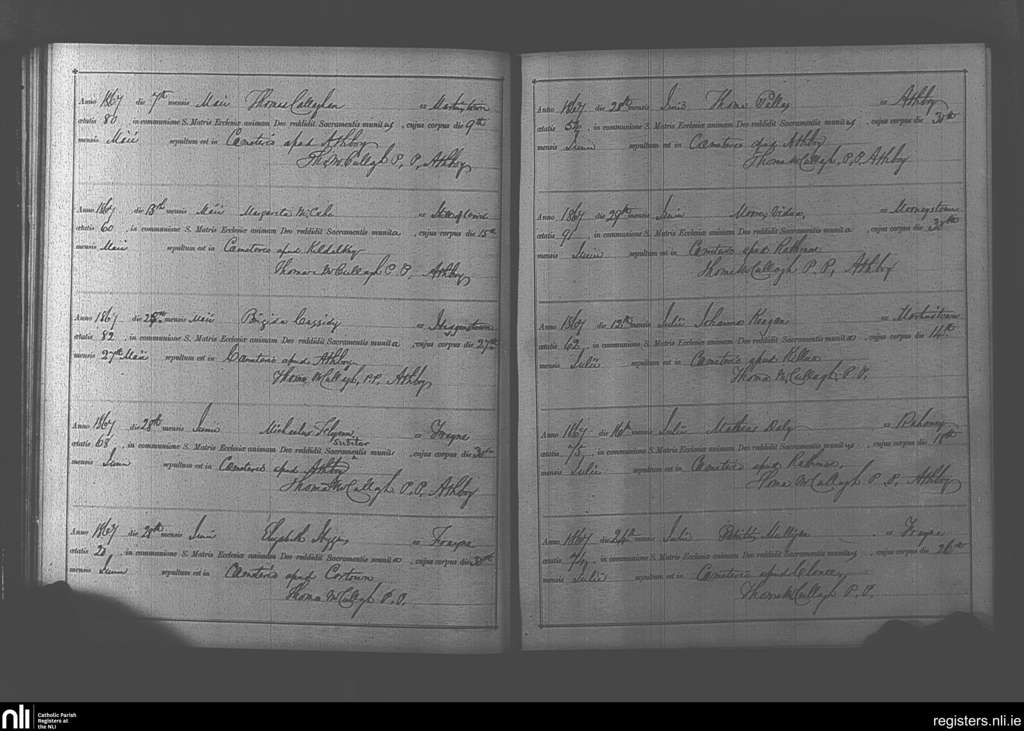 Anno 1867 die 7th mensis Maii Thomas Callaghan ex Martinstown
ætatis 80 in communione S. Matris Ecclesiæ animam Deo reddidit Sacramentis munitus, cujus corpus die 9th
mensis Maii sepultum est in Cœmeterio apud Athboy
Thos McCullagh P. P. Athboy
Anno 1867 die 13th mensis Maii Margareta McCabe ex
ætatis 60, in communione S. Matris Ecclesiæ animam Deo reddidit Sacramentis munita, cujus corpus die 15th
mensis Maii sepultum est in Cœmeterio apud Kildalkey
Thomas McCullagh P. P. Athboy
Anno 1867 die mensis Maii Brigida Cassidy ex
ætatis 82, in communione S. Matris Ecclesiæ animam Deo reddidit Sacramentis munita, cujus corpus die 27th
mensis 27th Maii sepultum est in Cœmeterio apud Athboy
Thomas McCullagh, P.P. Athboy
Anno 1867 die 28th mensis Junii Michaelus ex Frayne
ætatis 68, in communione S. Matris Ecclesiæ animam Deo reddidit Sacramentis munitus, cujus corpus die 30th
mensis Junii sepultum est in Cœmeterio apud Athboy
Thomas McCullagh P. P. Athboy
Anno 1867 die 28th mensis Junii Elizabeth ex Frayne
ætatis in communione S. Matris Ecclesiæ animam Deo reddidit Sacramentis munita, cujus corpus die 30th
mensis Junii sepultum est in Cœmeterio apud Cortown
Thomas McCullagh P. P.
Anno 1867 die 28th mensis Junii Thomas ex Athboy
ætatis in communione S. Matris Ecclesiæ animam Deo reddidit Sacramentis munitus, cujus corpus die 30th
mensis Junii sepultum est in Cœmeterio apud Athboy
Thomas McCullagh, P. P. Athboy
Anno 1867 die 29th mensis Junii Mooney Vidua, ex Mooneystown
ætatis 91, in communione S. Matris Ecclesiæ animam Deo reddidit Sacramentis munita, cujus corpus die 30th
mensis Junii sepultum est in Cœmeterio apud Rathmore
Thomas McCullagh P. P. Athboy
Anno 1867 die 12th mensis Julii Johanna Keegan ex Martinstown
ætatis 62, in communione S. Matris Ecclesiæ animam Deo reddidit Sacramentis munita, cujus corpus die 14th
mensis Julii sepultum est in Cœmeterio apud
Thomas McCullagh, P. P.
Anno 1867 die 16th mensis Julii Mathias Daly ex
ætatis 75, in communione S. Matris Ecclesiæ animam Deo reddidit Sacramentis munitus, cujus corpus die 18th
mensis Julii sepultum est in Cœmeterio apud Rathmore,
Thomas McCullagh P. P. Athboy
Anno 1867 die 24th mensis Julii Mulligan ex Frayne
ætatis in communione S. Matris Ecclesiæ animam Deo reddidit Sacramentis munitus, cujus corpus die 26th
mensis Julii sepultum est in Cœmeterio apud
Thomas McCullagh P. P.
nli
Catholic Parish
Registers at
the NLI
registers.nli.ie